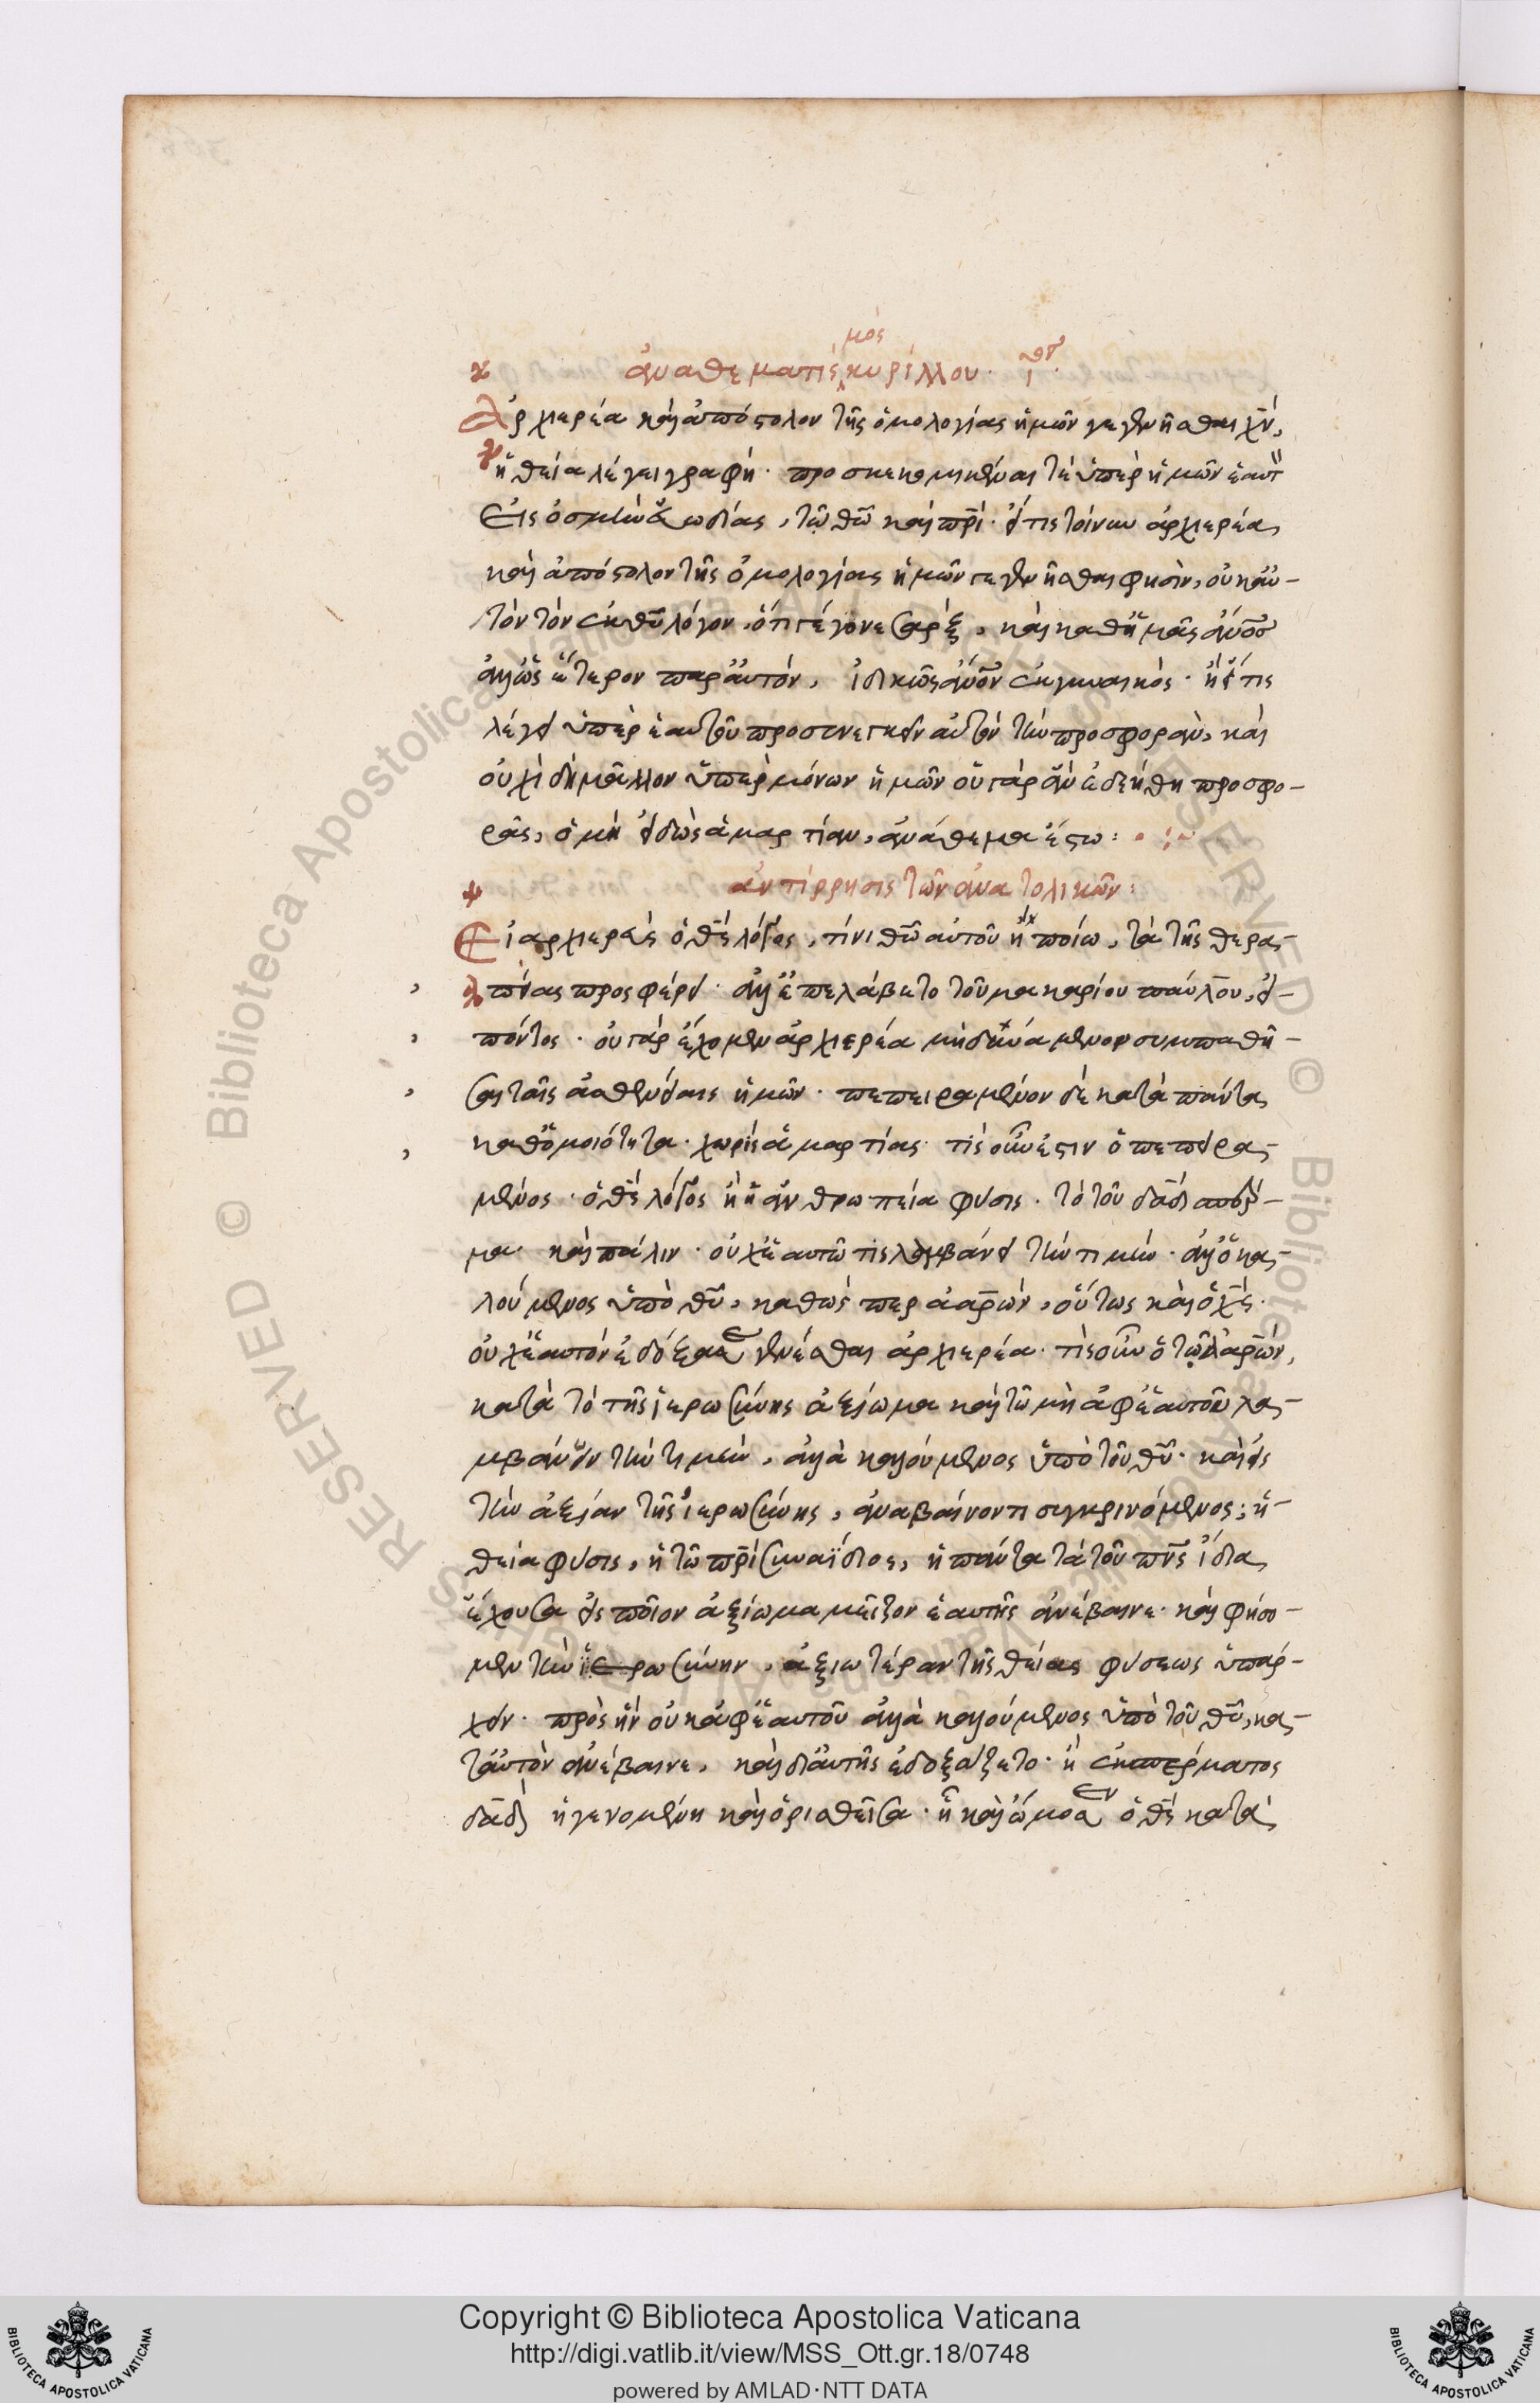 ἀναθεματισμὸς κυρίλλου. ι<sup>ος</sup>.
Ἀρχιερέα καὶ ἀπόστολον τῆς ὁμολογίας ἡμῶν γεγενῆσθαι χν,
ἡ θεία λέγει γραφή. προσκεκομικέναι τὲ ὑπὲρ ἡμῶν ἑαυτ
Εἰς ὀσμὴν εὐωδίας, τῷ θῶ καὶ πρί. εἴ τις τοίνυν ἀρχιερέα
καὶ ἀπόστολον τῆς ὁμολογίας ἡμῶν γεγενῆσθαι φησὶν, οὐκ αὐ-
τὸν τὸν ἐκ θυ λόγον, ὅτι γέγονε σὰρξ, καὶ καθ' ἡμᾶς ἄνος
ἀλλ' ὡς ἕτερον παρ' αὐτὸν, ἰδικῶς ἄνον ἐκ γυναικός. ἢ εἴ τις
λέγει ὑπὲρ ἑαυτοῦ προσενεγκεῖν αὐτὸν τὴν προσφορὰν, καὶ
οὐχὶ δὴ μᾶλλον ὑπὲρ μόνων ἡμῶν οὐ γὰρ ἂν ἐδεήθη προσφο-
ρᾶς, ὁ μὴ εἰδὼς ἁμαρτίαν, ἀνάθεμα ἔστω:
ἀντίρρησις τῶν ἀνατολικῶν:
Εἰ ἀρχιερεὺς ὁ θς λόγος, τίνι θῶ αὐτοῦ ἢ ποίω, τὰ τῆς θερα-
πείας προσφέρει. ἀλλ' ἐπελάβετο τοῦ μακαρίου παύλου, εἰ-
πόντος. οὐ γὰρ ἔχομεν ἀρχιερέα μὴ δυνάμενον συμπαθῆ-
σαι ταῖς ἀσθενείαις ἡμῶν. πεπειραμένον δὲ κατὰ πάντα
καθ' ὁμοιότητα. χωρὶς ἁμαρτίας. τίς οὖν ἐστιν ὁ πεπειρα-
μένος. ὁ θς λόγος ἢ ἡ ἀνθρωπεία φύσις. τὸ τοῦ δαδ σπέρ-
μα. καὶ πάλιν. οὐχ ἑαυτῶ τις λαμβάνει τὴν τιμήν. ἀλλ' ὁ κα-
λούμενος ὑπὸ θυ, καθώς περ ἀαρών, οὕτως καὶ ὁ χς.
οὐχ ἑαυτὸν ἐδόξασε γενέσθαι ἀρχιερέα. τίς οὖν ὁ τῶ ἀαρών,
κατὰ τὸ τῆς ἱερωσύνης ἀξίωμα καὶ τῶ μὴ ἀφ' ἑαυτοῦ λα-
μβάνειν τὴν τιμὴν, ἀλλὰ καλούμενος ὑπὸ τοῦ θυ. καὶ εἰς
τὴν ἀξίαν τῆς ἱερωσύνης, ἀναβαίνοντι συγκρινόμενος; ἡ
θεία φύσις, ἡ τῶ πρὶ συναΐδιος, ἡ πάντα τὰ τοῦ πρς ἴδια
ἔχουσα εἰς ποῖον ἀξίωμα μεῖζον ἑαυτῆς ἀνέβαινε. καὶ φήσο-
μεν τὴν ἱερωσύνην, ἀξιωτέραν τῆς θείας φύσεως ὑπάρ-
χειν. πρὸς ἣν οὐκ ἀφ' ἑαυτοῦ ἀλλὰ καλούμενος ὑπὸ τοῦ θυ, κα-
τ' αὐτὸν ἀνέβαινε, καὶ δι' αὐτῆς ἐδοξάζετο. ἢ ἐκ σπέρματος
δαδ ἡ γενομένη καὶ ὁρισθεῖσα. ἧ καὶ ὤμοσεν ὁ θς κατὰ
Copyright © Biblioteca Apostolica Vaticana
http://digi.vatlib.it/view/MSS_Ott.gr.18/0748
powered by AMLAD·NTT DATA